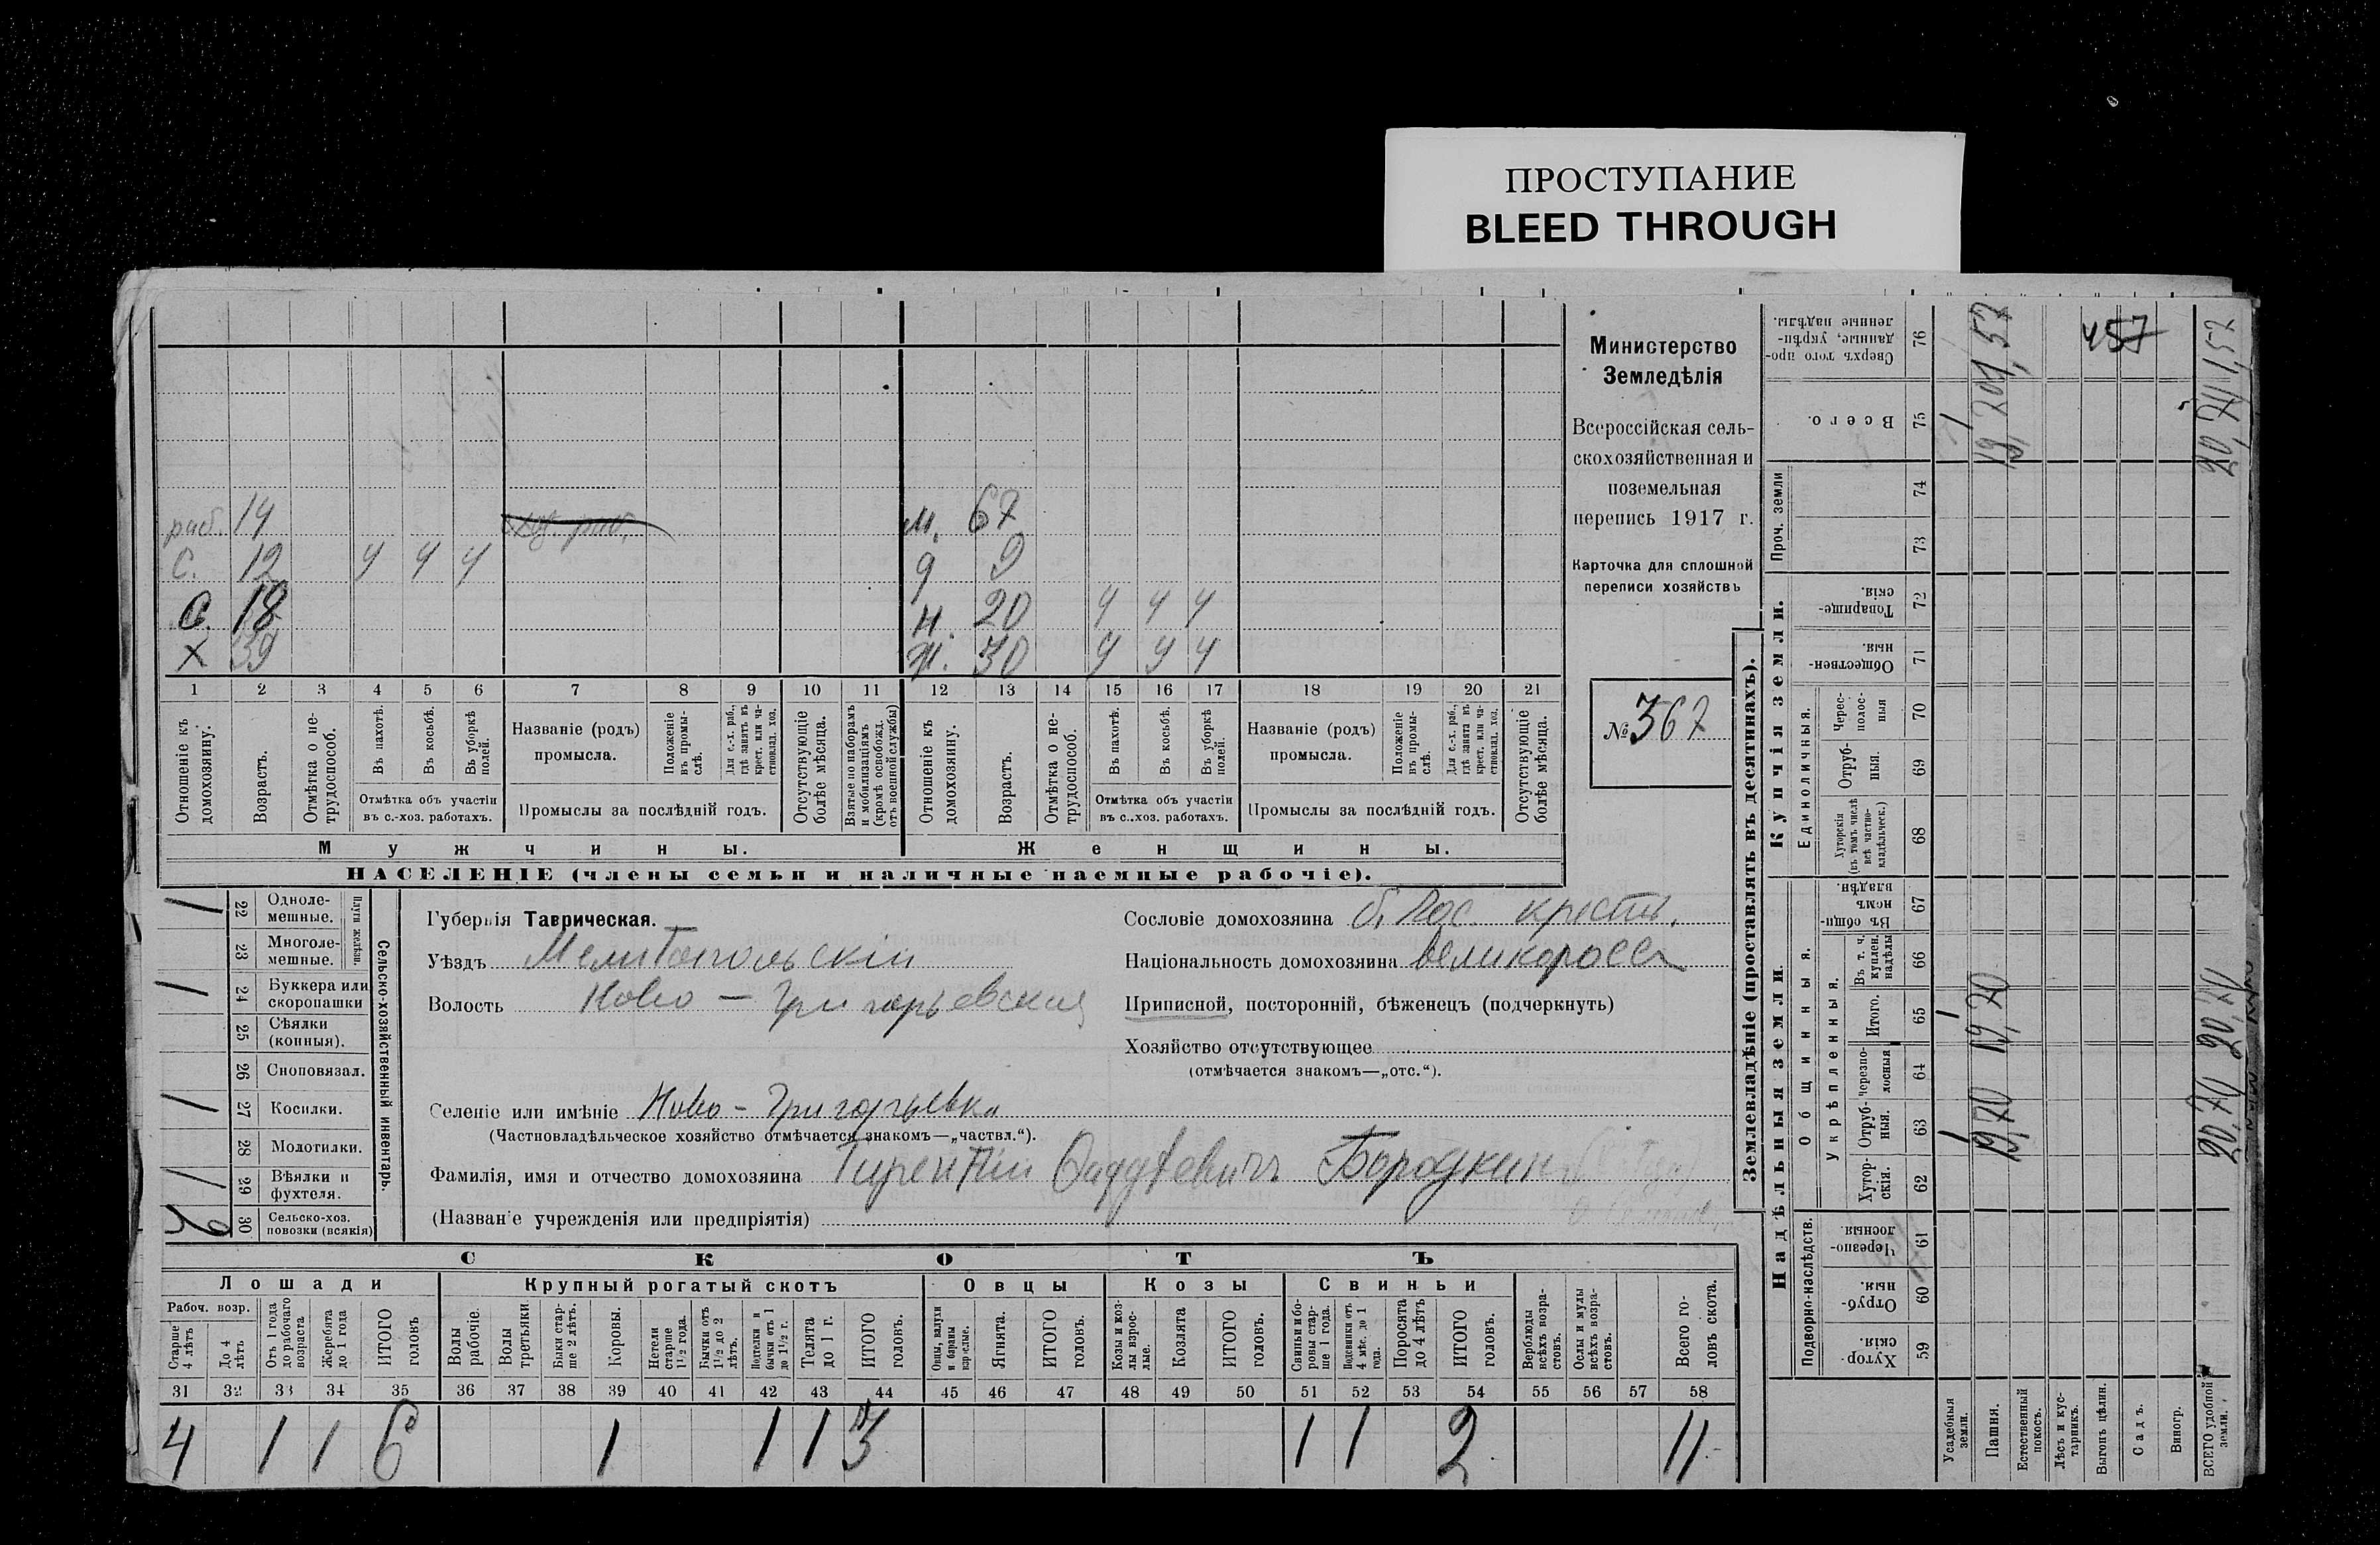 ПРОСТУПАНИЕ
BLEED THROUGH
раб. 14 м. 67
С. 12 ч ч ч д 9
С. 18 н. 20 ч ч ч
Х 39 ж. 30 ч ч ч
1 2 3 4 5 6 7 8 9 10 11 12 13 14 15 16 17 18 19 20 21
Отношеніе къ домохозяину.
Возрастъ.
Отмѣтка о не-
трудоспособ.
Въ пахотѣ.
Въ косьбѣ.
Въ уборкѣ полей.
Отмѣтка объ участіи
въ с.-хоз. работахъ.
Названіе (родъ)
промысла.
Положеніе
въ промы-
слѣ.
Для с.-х. раб.,
гдѣ занятъ въ
крест. или ча-
стновлад. хоз.
Промыслы за послѣдній годъ.
Отсутствующіе
болѣе мѣсяца.
Взятые по наборамъ
и мобилизаціямъ
(кромѣ освобожд.
отъ военной службы)
Отношеніе къ
домохозяину.
Возрастъ.
Отмѣтка о не-
трудоспособ.
Въ пахотѣ.
Въ косьбѣ.
Въ уборкѣ
полей.
Отмѣтка объ участіи
въ с..хоз. работахъ.
Названіе (родъ)
промысла.
Положеніе
въ промы-
слѣ.
Для с.-х. раб.,
гдѣ занята въ
крест. или ча-
стновлад. хоз.
Промыслы за послѣдній годъ.
Отсутствующіе
болѣе мѣсяца.
Мужчины. Женщины.
НАСЕЛЕНІЕ (члены семьи и наличные наемные рабочіе).
Министерство
Земледѣлія
Всероссійская сель-
скохозяйственная и
поземельная
перепись 1917 г.
Карточка для сплошной
переписи хозяйствъ
№ 367
Сельско-хозяйственный инвентарь.
Плуги желѣзн.
1 22 Одноле-
мешные.
23 Многоле-
мешные.
1 24 Буккера или
скоропашки
25 Сѣялки
(конныя).
26 Сноповязал.
1 27 Косилки.
28 Молотилки.
1 29 Вѣялки и
фухтеля.
2 30 Сельско-хоз.
повозки (всякія)
Губернія Таврическая.
Уѣздъ Мелитопольскій
Волость Ново-Григорьевская
Селеніе или имѣніе Ново-Григорьевка
(Частновладѣльческое хозяйство отмѣчается знакомъ—„частвл.“).
Фамилія, имя и отчество домохозяина Терентій Фаддѣевичъ Бородкин
(Названіе учрежденія или предпріятія)
Сословіе домохозяина б. Гос. крестн.
Національность домохозяина великоросс
Приписной, посторонній, бѣженецъ (подчеркнуть)
Хозяйство отсутствующее
(отмѣчается знакомъ—„отс.“).
СКОТЪ
Лошади Крупный рогатый скотъ Овцы Козы Свиньи
Рабоч. возр.
Старше
4 лѣтъ
До 4
лѣтъ
Отъ 1 года
до рабочаго
возраста
Жеребята
до 1 года
ИТОГО
головъ
Волы
рабочіе.
Волы
третьяки.
Быки стар-
ше 2 лѣтъ.
Коровы.
Нетели
старше
1½ года.
Бычки отъ
1½ до 2
лѣтъ.
Подтелки и
бычки отъ 1
до 1½ г.
Телята
до 1 г.
ИТОГО
головъ.
Овцы, валухи
и бараны
взрослые.
Ягнята.
ИТОГО
головъ.
Козы и коз-
лы взрос-
лые.
Козлята
ИТОГО
головъ.
Свиньи и бо-
ровы стар-
ше 1 года.
Подсвинки отъ
4 мѣс. до 1
года.
Поросята
до 4 лѣтъ
ИТОГО
головъ.
Верблюды
всѣхъ возра-
стовъ.
Ослы и мулы
всѣхъ возра-
стовъ.
Всего го-
ловъ скота.
31 32 33 34 35 36 37 38 39 40 41 42 43 44 45 46 47 48 49 50 51 52 53 54 55 56 57 58
4 1 1 6 1 1 1 3 1 1 2 11
Землевладѣніе (проставлять въ десятинахъ).
Надѣльныя земли. Купчія земли. Проч. земли
Подворно-наслѣдств.
Общинныя.
Укрѣпленныя.
Единоличныя.
Хутор-
скія. 59
Отруб-
ныя. 60
Черезпо-
лосныя 61
Хутор-
скія. 62
Отруб-
ныя. 63
Черезпо-
лосныя 64
Итого. 65
Въ т. ч.
куплен.
надѣлы 66
Въ общи-
номъ
владѣн. 67
Хуторскія
(въ томъ числѣ
всѣ частно-
владѣльческ.) 68
Отруб-
ныя. 69
Черес-
полос-
ныя 70
Обществен-
ныя. 71
Товарище-
скія. 72
73
74
Всего. 75
Сверхъ того про-
данные, укрѣп-
ленные надѣлы. 76
Усадебныя
земли. 1 1 1
Пашня. 19,70 19,70
Естественный
покосъ.
Лѣсъ и кус-
тарникъ.
Выгонъ цѣлин. 457
Садъ.
Виногр.
ВСЕГО удобной
земли. 20,70 20,70